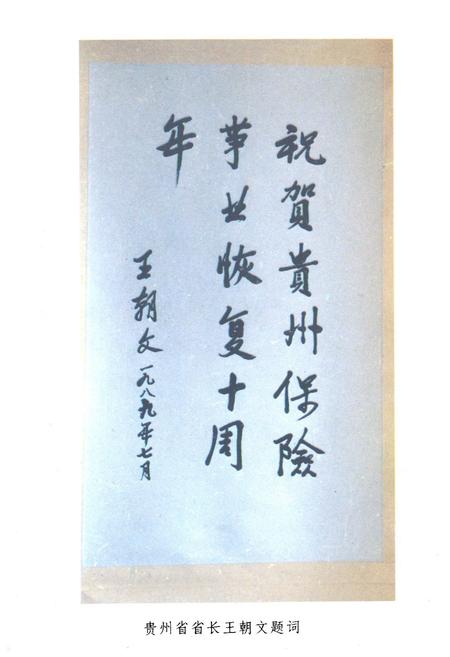 祝賀貴州保險
事业恢复十周
年
王朝文一九八九年七月
贵州省省长王朝文题词